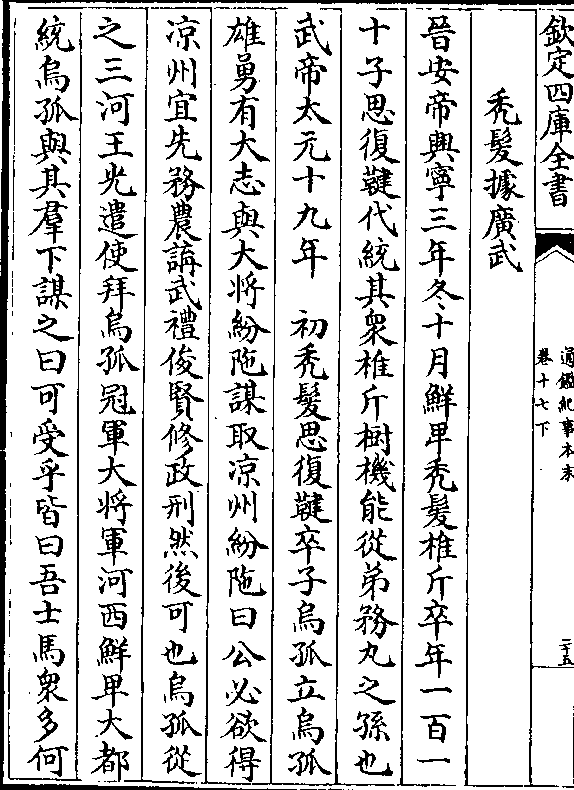 欽定四庫全書
通鑑紀事本末
卷十七下
二十五
秃髮據廣武
晉安帝興寧三年冬十月鮮卑秃髮椎斤卒年一百一
十子思復鞬代統其衆椎斤樹機能從弟務丸之孫也
武帝太元十九年　初秃髮思復鞬卒子烏孤立烏孤
雄勇有大志與大将紛陁謀取凉州紛陁曰公必欲得
凉州宜先務農講武禮俊賢修政刑然後可也烏孤從
之三河王光遣使拜烏孤冠軍大将軍河西鮮卑大都
統烏孤與其羣下謀之曰可受乎皆曰吾士馬衆多何